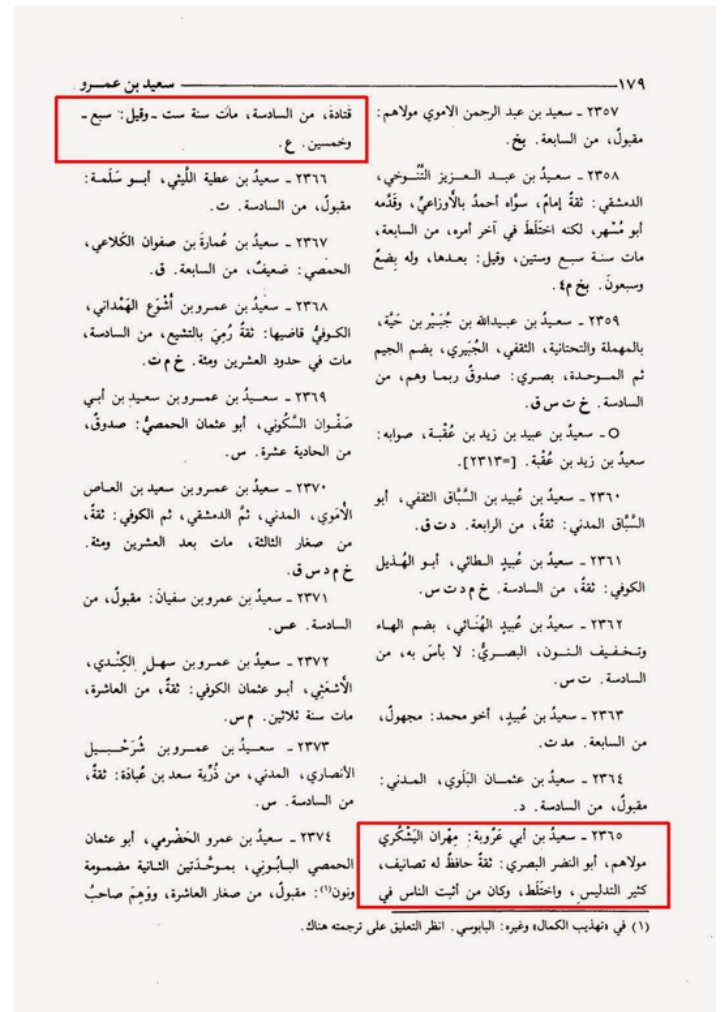 ١٧٩ سعيد بن عمـــرو
٢٣٥٧ ـ سعيد بن عبد الرحمن الاموي مولاهم:
مقبولٌ، من السابعة. بخ.
٢٣٥٨ ـ سعيـدُ بن عبــد الـعــزيز التَّنُــوخي،
الدمشقي: ثقةٌ إمامٌ، سوَّاه أحمدُ بالأوزاعيِّ، وقَدَّمه
أبو مُسْهر، لكنه اختَلَطَ في آخر أمره، من السابعة،
مات سنـة سبـع وستين، وقيل: بعـدها، وله بِضعٌ
وسبعونَ. بخ م٤.
٢٣٥٩ ـ سعيـدُ بن عبـيدالله بن جُبَـيْر بن حَيَّة،
بالمهملة والتحتانية، الثقفي، الجُبَيري، بضم الجيم
ثم المـــوحـدة، بصـري: صدوقٌ ربمـا وهم، من
السادسة. خ ت س ق.
O ـ سعيدُ بن عبيد بن زيد بن عُقْبـة، صوابه:
سعيدُ بن زيد بن عُقْبة. [=٢٣١٣].
٢٣٦٠ ـ سعيدُ بن عُبيد بن السَّبَّاق الثقفي، أبو
السَّبَّاق المدني: ثقةٌ، من الرابعة. د ت ق.
٢٣٦١ ـ سعيدُ بن عُبيدٍ الـطائي، أبـو الهُـذيل
الكوفي: ثقةٌ، من السادسة. خ م د ت س.
٢٣٦٢ ـ سعيدُ بن عُبيدٍ الهُنَـائي، بضم الهـاء
وتـخـفيف النــون، البصــريُّ: لا بأسَ به، من
السادسة. ت س.
٢٣٦٣ ـ سعيدُ بن عُبيدٍ، أخو محمد: مجهولٌ،
من السابعة. مد ت.
٢٣٦٤ ـ سعيدُ بن عثمــان البَلَوي، المـدني:
مقبولٌ، من السادسة. د.
٢٣٦٥ ـ سعيدُ بن أبي عَرُوبة: مِهْران اليَشْكُري
مولاهم، أبو النضر البصري: ثقةٌ حافظٌ له تصانيف،
كثير التدليس، واختَلَط، وكان من أثبت الناس في
قتادةَ، من السادسة، مات سنة ست ـ وقيل: سبع ـ
وخمسين. ع.
٢٣٦٦ ـ سعيدُ بن عطية اللَّيثي، أبــو سَلَمـة:
مقبولٌ، من السادسة. ت.
٢٣٦٧ ـ سعيدُ بن عُمارةَ بن صفوان الكَلاعي،
الحمصي: ضعيفٌ، من السابعة. ق.
٢٣٦٨ ـ سعيدُ بن عمـروبن أَشْوَع الهَمْداني،
الكـوفيُّ قاضيها: ثقةٌ رُمِيَ بالتشيع، من السادسة،
مات في حدود العشرين ومئة. خ م ت.
٢٣٦٩ ـ سعــيدُ بن عمــروبن سعيـد بن أبي
صَفْـوان السَّكُوني، أبو عثمان الحمصيُّ: صدوقٌ،
من الحادية عشرة. س.
٢٣٧٠ ـ سعيدُ بن عمـروبن سعيد بن العـاص
الأُمَوي، المدني، ثمَّ الدمشقي، ثم الكوفي: ثقةٌ،
من صغار الثالثة، مات بعد العشرين ومئة.
خ م د س ق.
٢٣٧١ ـ سعيدُ بن عمروبن سفيانَ: مقبولٌ، من
السادسة. عس.
٢٣٧٢ ـ سعيدُ بن عمـروبن سهـل الكِنْـدي،
الأشعَثي، أبـو عثمان الكوفي: ثقةٌ، من العاشرة،
مات سنة ثلاثين. م س.
٢٣٧٣ ـ سعــيدُ بن عمــروبن شُرَحْـبــيل
الأنصاري، المدني، من ذُرِّية سعد بن عُبادَة: ثقةٌ،
من السادسة. س.
٢٣٧٤ ـ سعيدُ بن عمرو الحَضْرمي، أبو عثمان
الحمصي البـابُـوني، بمـوحَّـدَتين الثـانية مضمـومة
ونون(١): مقبولٌ، من صغار العاشرة، ووَهِمَ صاحبُ
(١) في «تهذيب الكمال» وغيره: البابوسي. انظر التعليق على ترجمته هناك.